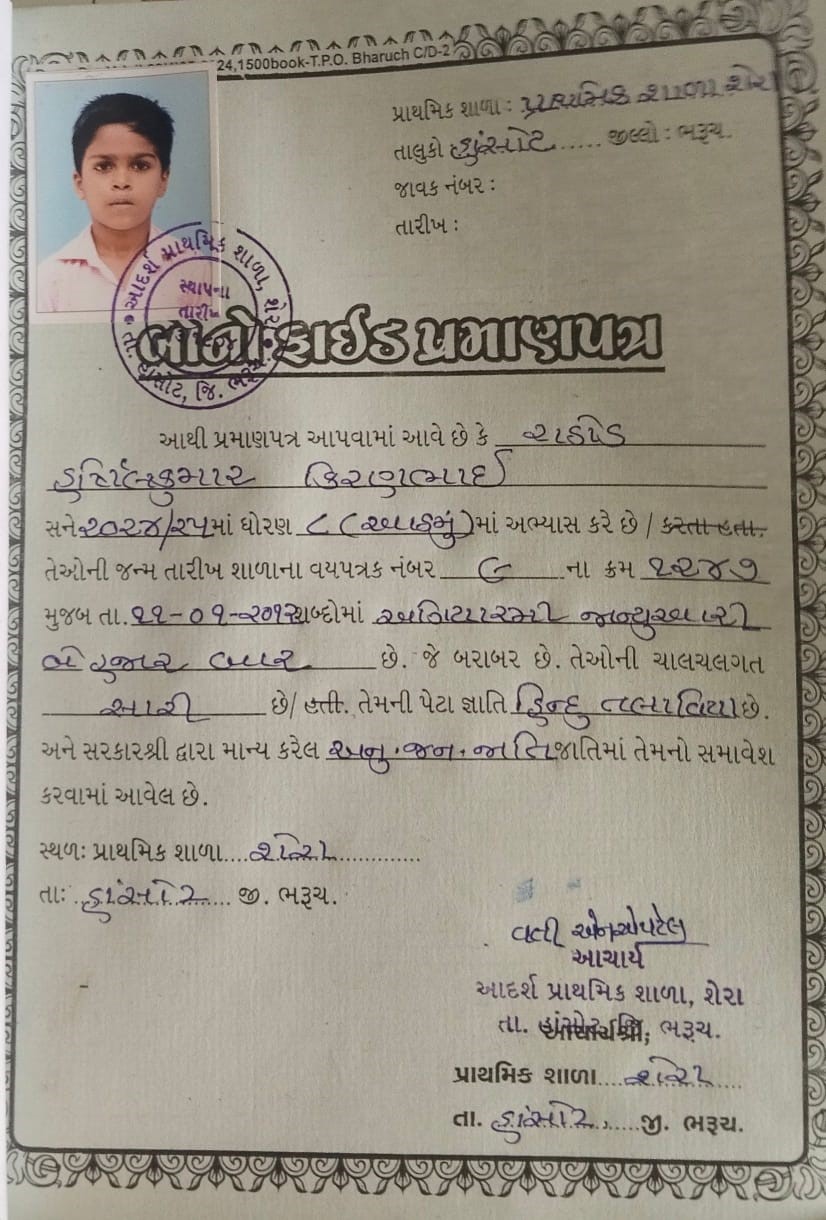 24,1500book-T.P.O. Bharuch C/D-2
પ્રાથમિક શાળા : પ્રાથમિક શાળા શેરા
તાલુકો હાંસોટ ...... જીલ્લો : ભરૂચ.
જાવક નંબર :
તારીખ :
આદર્શ પ્રાથમિક શાળા, શેરા
સ્થાપના
તારીખ
તા. હાંસોટ, જિ. ભરૂચ
બોનોફાઈડ પ્રમાણપત્ર
આથી પ્રમાણપત્ર આપવામાં આવે છે કે રાઠોડ
કિરણભાઈ
સને ૨૦૨૪/૨૫માં ધોરણ ૮ (આઠમું)માં અભ્યાસ કરે છે / કરતા હતા.
તેઓની જન્મ તારીખ શાળાના વયપત્રક નંબર ૯ ના ક્રમ ૧૨૪૭
મુજબ તા. ૧૧-૦૧-૨૦૧૨ શબ્દોમાં અગિયારમી જાન્યુઆરી
બે હજાર બાર છે. જે બરાબર છે. તેઓની ચાલચલગત
સારી છે/ હતી. તેમની પેટા જ્ઞાતિ હિન્દુ તલાવિયા છે.
અને સરકારશ્રી દ્વારા માન્ય કરેલ અનુ.જન.જાતિ જાતિમાં તેમનો સમાવેશ
કરવામાં આવેલ છે.
સ્થળ: પ્રાથમિક શાળા....શેરા..............
તા: .હાંસોટ..... જી. ભરૂચ.
વતી
આચાર્ય
આદર્શ પ્રાથમિક શાળા, શેરા
તા. હાંસોટ જિ. ભરૂચ.
આચાર્યશ્રી,
પ્રાથમિક શાળા....શેરા.....
તા. હાંસોટ......જી. ભરૂચ.